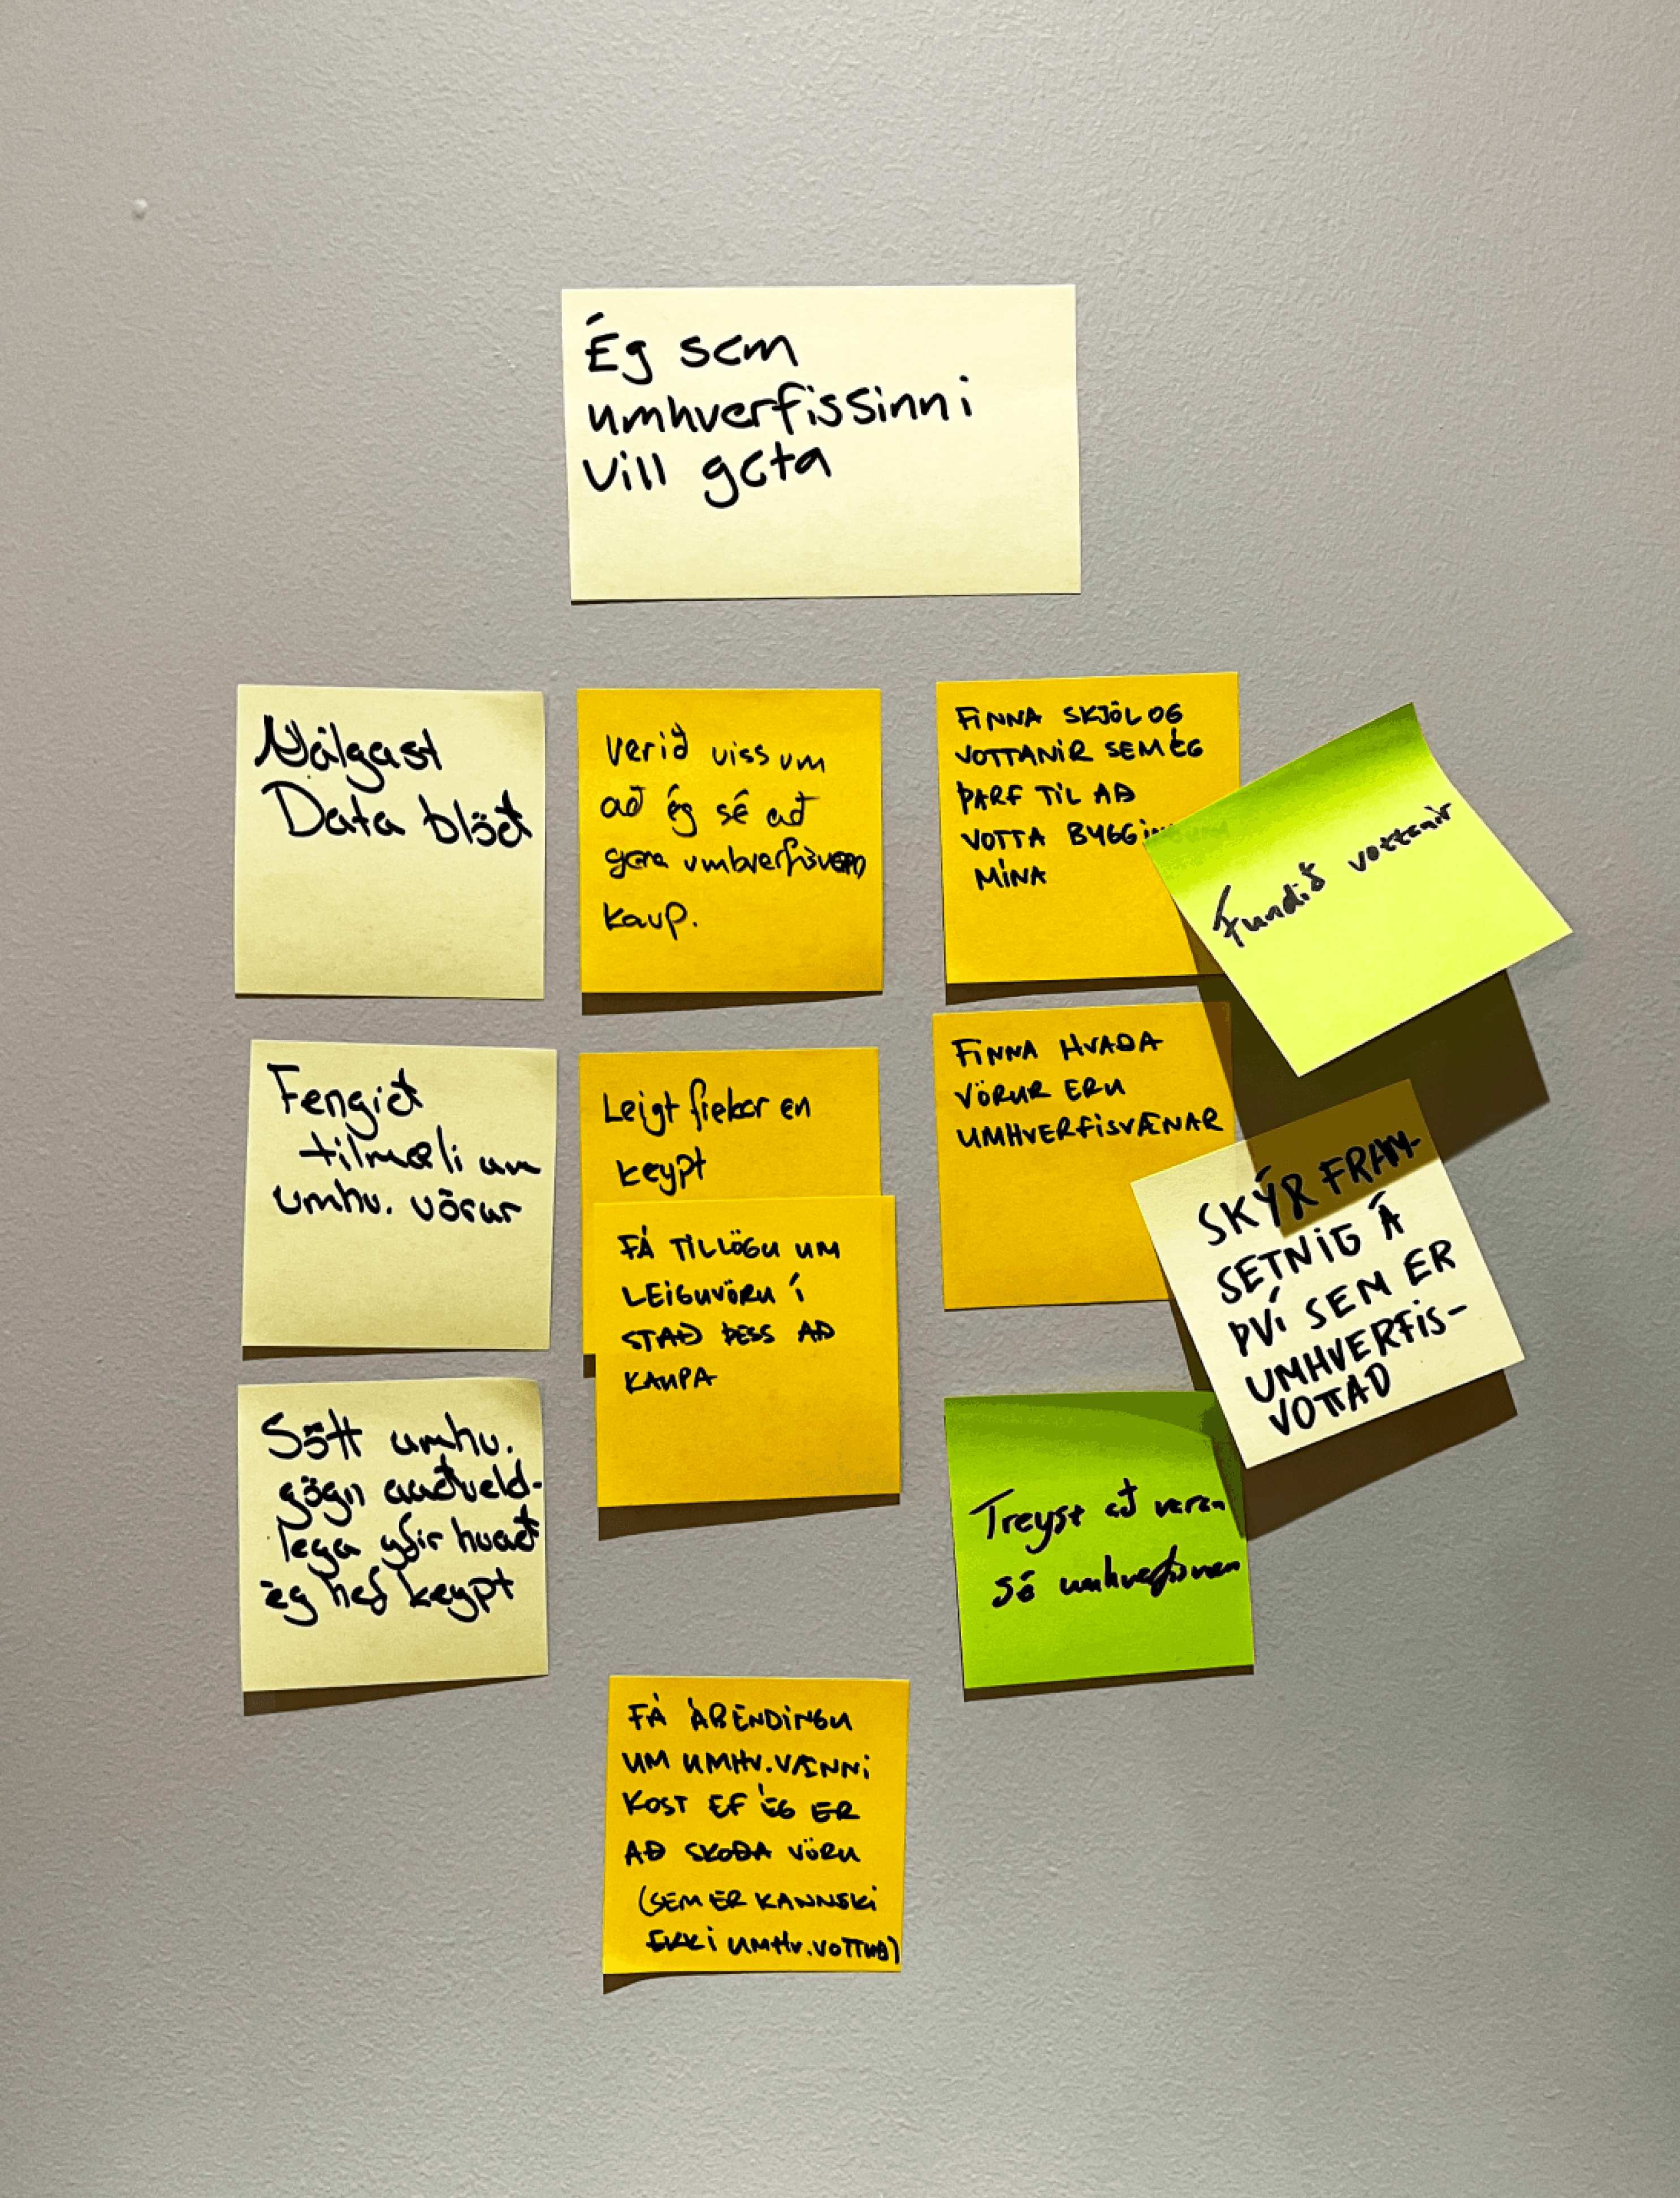 Ég sem
umhverfissinni
vill geta
Nálgast
Data blöð
Fengið
tilmæli um
umhv. vörur
Sótt umhv.
gögn auðveld-
lega yfir hvað
ég hef keypt
Verið viss um
að ég sé að
gera umhverfisvæn
kaup.
Leigt frekar en
keypt
FÁ TILLÖGU UM
LEIGUVÖRU Í
STAÐ ÞESS AÐ
KAUPA
FÁ ÁBENDINGU
UM UMHV.VÆNNI
KOST EF ÉG ER
AÐ SKOÐA VÖRU
(SEM ER KANNSKI
EKKI UMHV.VOTTUÐ)
FINNA SKJÖL OG
VOTTANIR SEM ÉG
ÞARF TIL AÐ
VOTTA BYGGINGUNA
MÍNA
FINNA HVAÐA
VÖRUR ERU
UMHVERFISVÆNAR
Treyst að varan
sé umhverfisvæn
Fundið vottanir
SKÝR FRAM-
SETNIG Á
ÞVÍ SEM ER
UMHVERFIS-
VOTTAÐ